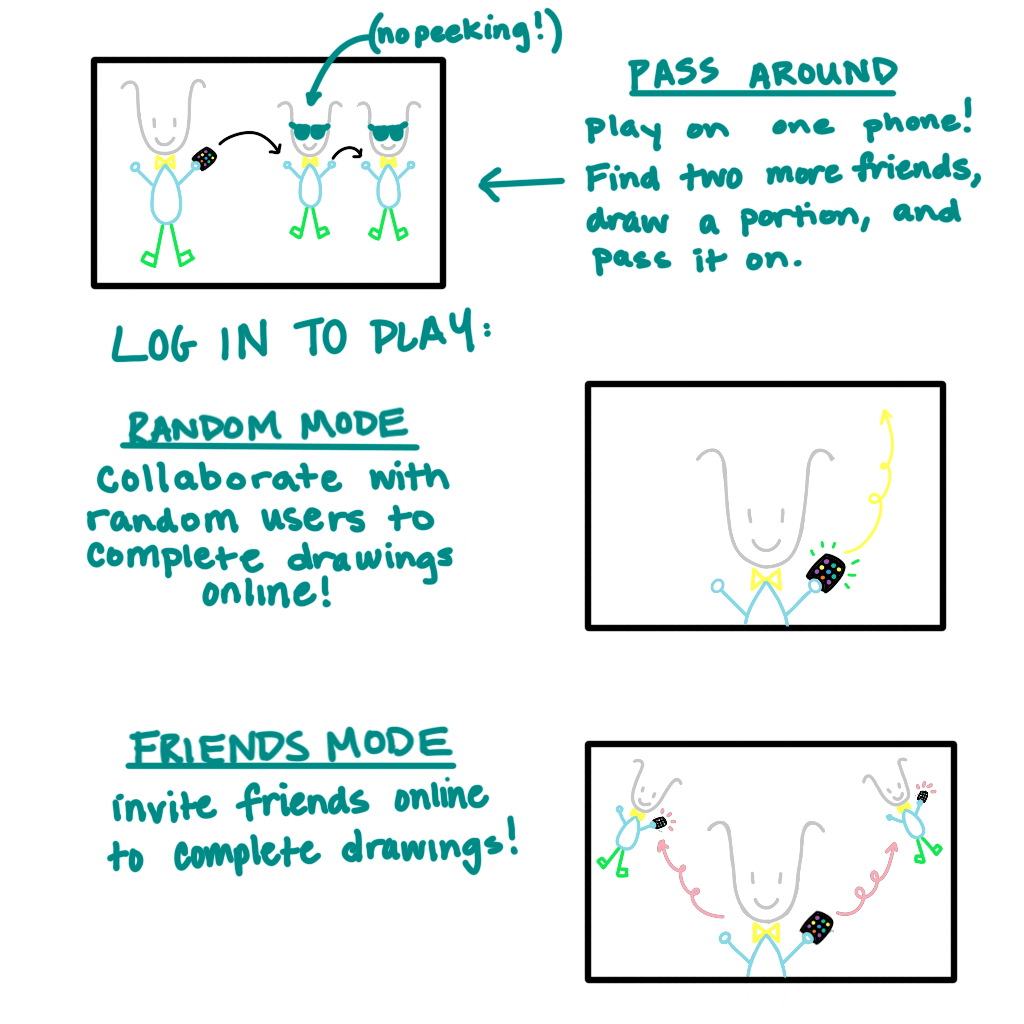 (no peeking!)
PASS AROUND
play on one phone!
Find two more friends,
draw a portion, and
pass it on.
LOG IN TO PLAY:
RANDOM MODE
collaborate with
random users to
complete drawings
online!
FRIENDS MODE
invite friends online
to complete drawings!